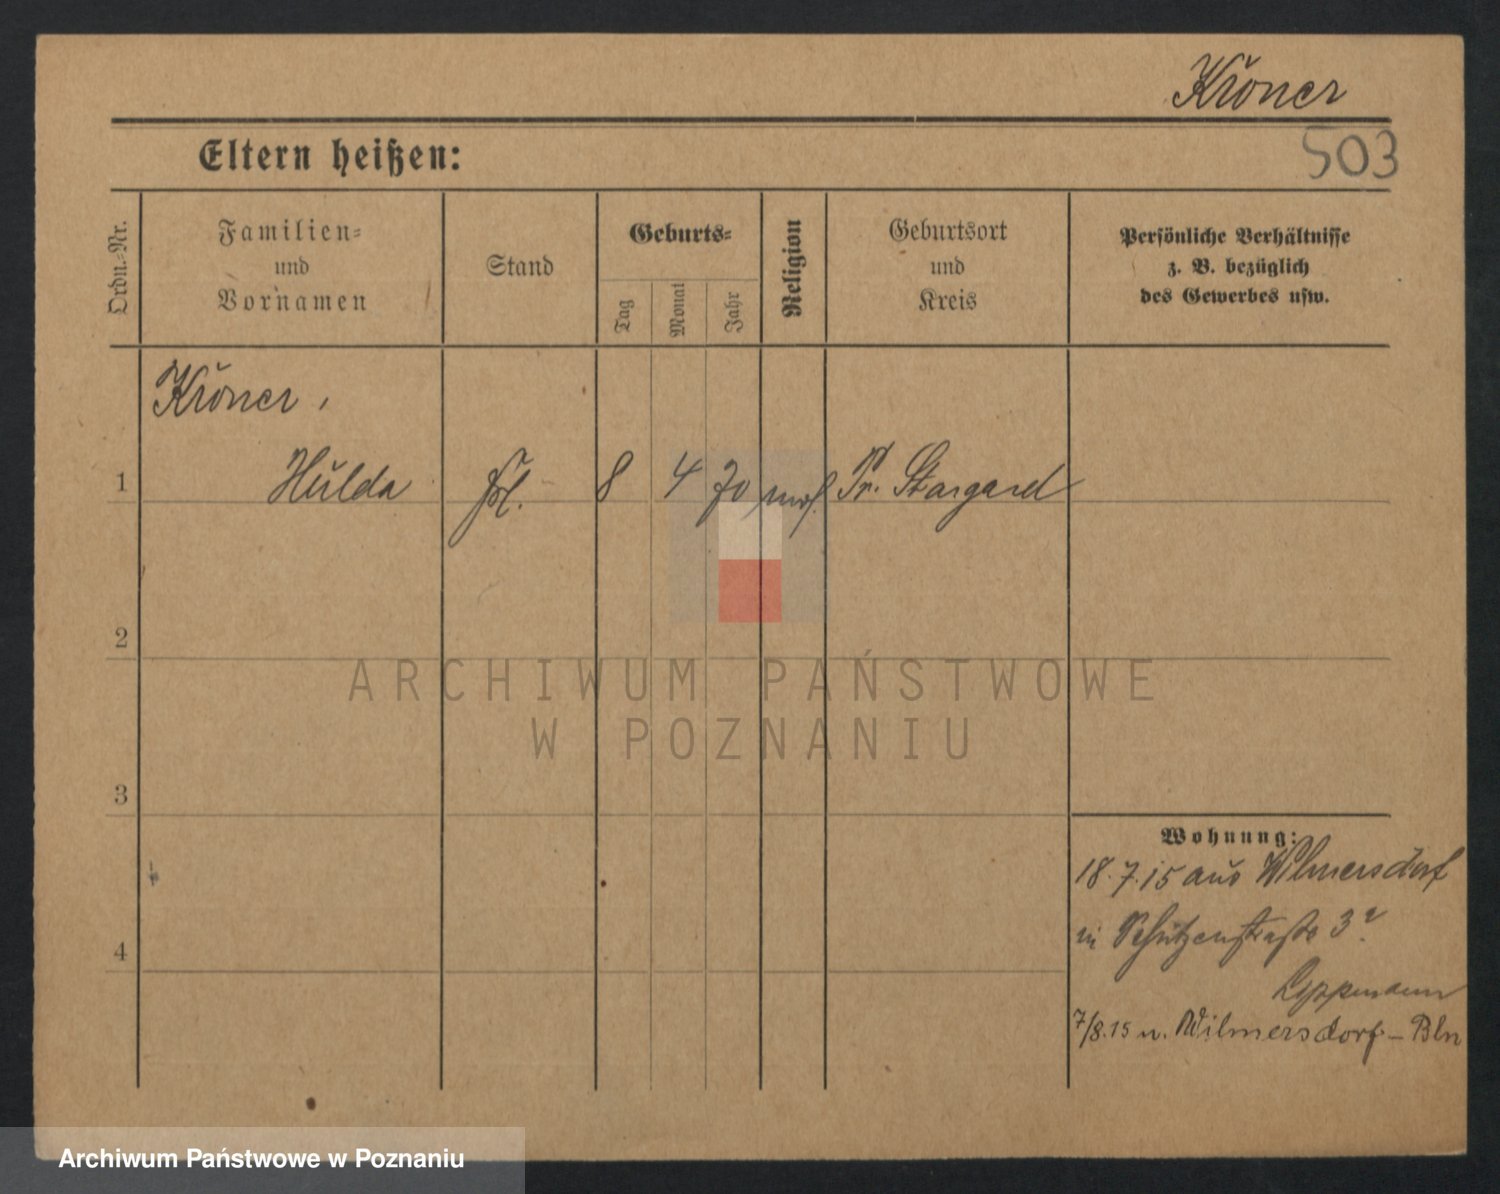 Kroner
503
Eltern heißen:
Ordn.-Nr.
Familien-
und
Vornamen
Stand
Geburts-
Tag
Monat
Jahr
Religion
Geburtsort
und
Kreis
Persönliche Verhältnisse
z. B. bezüglich
des Gewerbes usw.
Kroner,
1 Hulda Frl. 8 4 70 mos. Pr. Stargard
2
3
4
Wohnung:
18.7.15 aus Wilmersdorf
in Schützenstraße 3
Lippmann
7/8.15 n. Wilmersdorf - Bln
ARCHIWUM PAŃSTWOWE
W POZNANIU
Archiwum Państwowe w Poznaniu